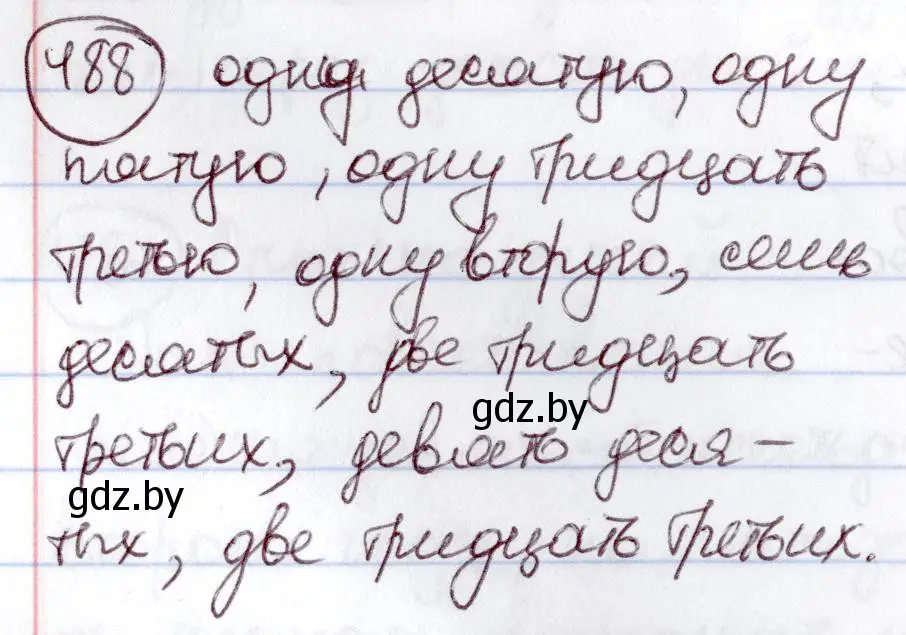 488 одну десятую, одну
пятую, одну тридцать
третью, одну вторую, семь
десятых, две тридцать
gdz.by
третьих, девять деся-
gdz.by
тых, две тридцать третьих.